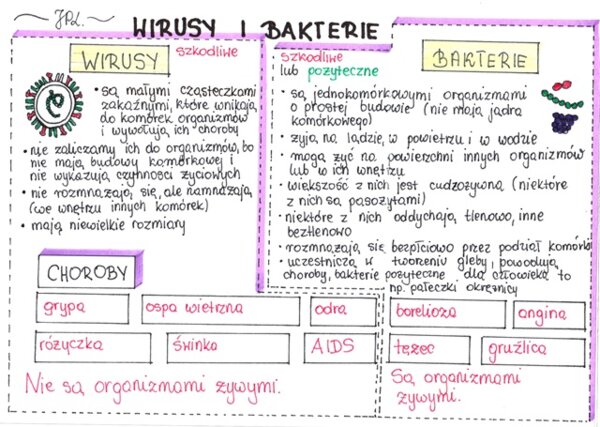 JPL.
WIRUSY I BAKTERIE
WIRUSY
szkodliwe
• są małymi cząsteczkami
zakaźnymi, które wnikają
do komórek organizmów
i wywołują ich choroby
• nie zaliczamy ich do organizmów, bo
nie mają budowy komórkowej i
nie wykazują czynności życiowych
• nie rozmnażają się, ale namnażają
(we wnętrzu innych komórek)
• mają niewielkie rozmiary
szkodliwe
lub pożyteczne
BAKTERIE
• są jednokomórkowymi organizmami
o prostej budowie (nie mają jądra
komórkowego)
• żyją na lądzie, w powietrzu i w wodzie
• mogą żyć na powierzchni innych organizmów
lub w ich wnętrzu
• większość z nich jest cudzożywna (niektóre
z nich są pasożytami)
• niektóre z nich oddychają tlenowo, inne
beztlenowo
• rozmnażają się bezpłciowo przez podział komórki
• uczestniczą w tworzeniu gleby, powodują
choroby, bakterie pożyteczne dla człowieka to
np. pałeczki okrężnicy
CHOROBY
grypa
ospa wietrzna
odra
borelioza
angina
różyczka
świnka
AIDS
tężec
gruźlica
Nie są organizmami żywymi.
Są organizmami
żywymi.